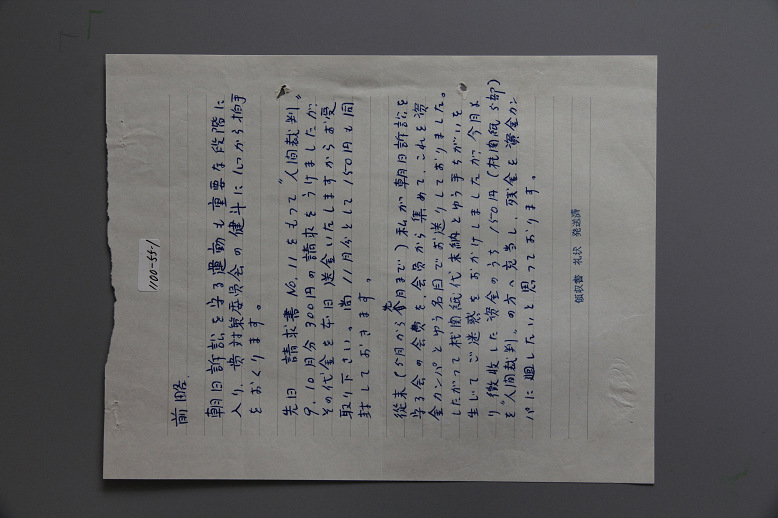 1100-55-1
前略.
朝日訴訟を守る運動も重要な段階に
入り、貴対策委員会の健斗に心から拍手
をおくります。
先日 請求書 No.11 をもって "人間裁判"
9.10月分 300円の請求をうけましたが、
その代金を本日送金いたしますからお受
取り下さい。尚 11月分として 150円も同
封しておきます。
従来(5月から先月まで)私が朝日訴訟を
守る会の会費を、会員から集めて、これを資
金カンパとゆう名目でお送りしておりました。
したがって機関紙代未納とゆう手ちがいを
生じてご迷惑をおかけしましたが、今月よ
り徴収した資金のうち 150円(機関紙5部)
を"人間裁判"の方へ充当し、残金を資金カン
パに廻したいと思っております。
領収書 礼状 発送済